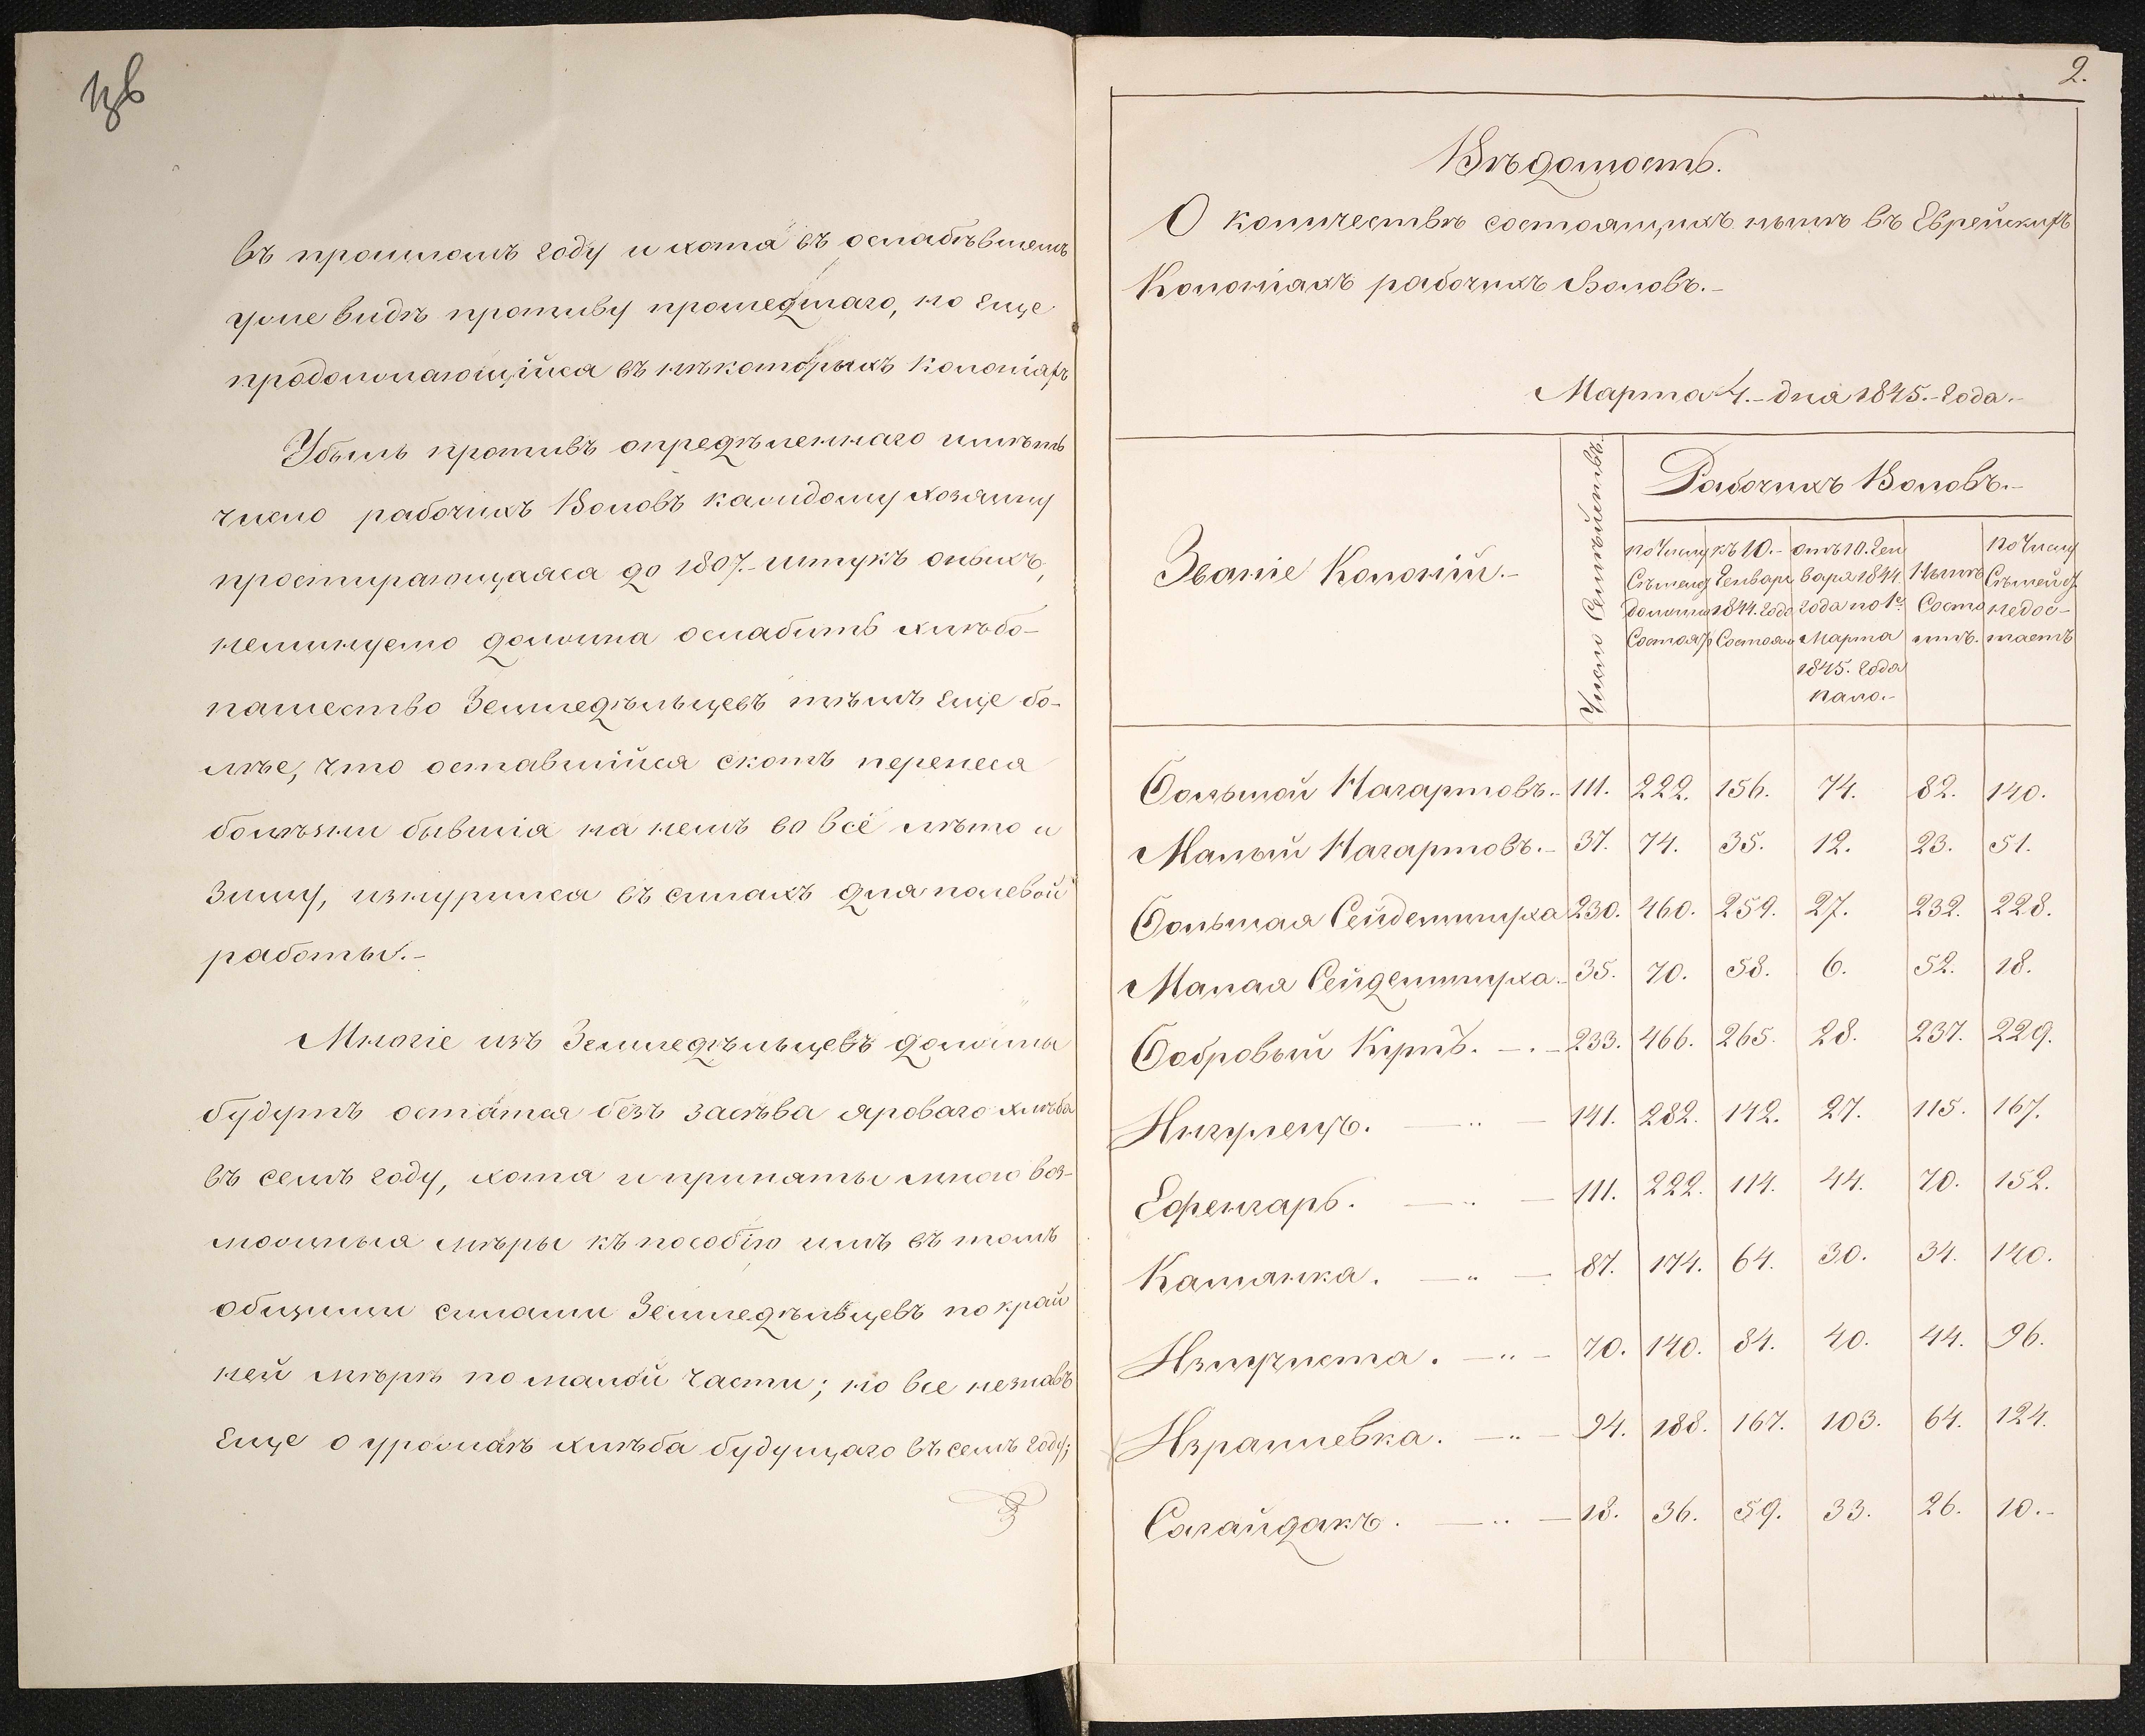 1в
въ прошломъ году и хотя въ ослабѣвшемъ
уже видѣ противу прошедшаго, но еще
продолжающійся въ нѣкоторыхъ Колоніяхъ
Убыль противъ опредѣленнаго имѣть
число рабочихъ Воловъ каждому хозяину
простирающаяся до 1807. штукъ оныхъ,
неминуемо должна ослабить хлѣбо-
пашество Земледѣльцевъ тѣмъ еще бо-
лѣе, что оставшійся скотъ перенеся
болѣзни бывшія на немъ во всё лѣто и
зиму, изнурился въ силахъ для полевой
работы.-
Многіе изъ Земледѣльцевъ должны
будутъ остатся безъ засѣва яроваго хлѣба
въ семъ году, хотя и приняты мною воз-
можныя мѣры къ пособію имъ въ томъ
общими силами Земледѣльцевъ по край
ней мѣрѣ по малой части; но все незнавъ
еще о урожаѣ хлѣба будущаго въ семъ году;
2.
Вѣдомость.
О количествѣ состоящихъ нынѣ въ Еврейскихъ
Колоніяхъ рабочихъ Воловъ.-
Марта 4.- дня 1845.- года.-
Званіе Колоній.-
Число Семѣйствъ.
Рабочихъ Воловъ.-
по Числу Сѣмейст должно Состоять
къ 10.- Генваря 1844. года Состояло
отъ 10. Ген варя 1844. года по 1е Марта 1845. года пало.-
Нынѣ Состо итъ.
по Числу Сѣмейст недос- таетъ
Большой Нагартовъ.- 111. 222. 156. 74. 82. 140.
Малый Нагартовъ.- 37. 74. 35. 12. 23. 51.
Большая Сейдеминуха 230. 460. 259. 27. 232. 228.
Малая Сейдеминуха.- 35. 70. 58. 6. 52. 18.
Бобровый Кутъ. - . - 233. 466. 265. 28. 237. 229.
Ингулецъ. - .. - 141. 282. 142. 27. 115. 167.
Ефенгаръ. - .. - 111. 222. 114. 44. 70. 152.
Камянка. - .. - 87. 174. 64. 30. 34. 140.
Излучиста. - .. - 70. 140. 84. 40. 44. 96.
Израилевка. - .. - 94. 188. 167. 103. 64. 124.
Сагайдакъ. - .. - 18. 36. 59. 33. 26. 10.-